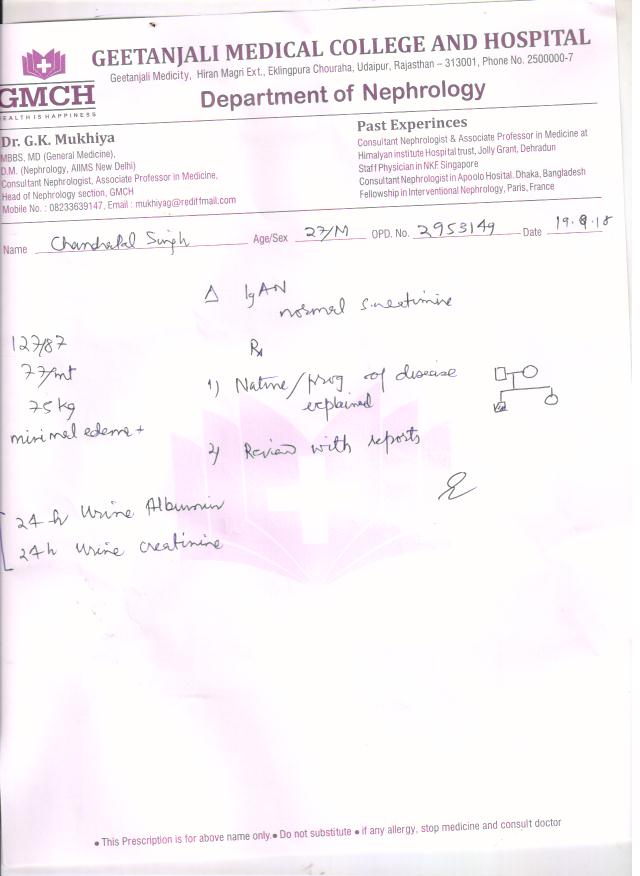 GEETANJALI MEDICAL COLLEGE AND HOSPITAL
Geetanjali Medicity, Hiran Magri Ext., Eklingpura Chouraha, Udaipur, Rajasthan – 313001, Phone No. 2500000-7
GMCH
HEALTH IS HAPPINESS
Department of Nephrology
Dr. G.K. Mukhiya
MBBS, MD (General Medicine),
D.M. (Nephrology, AIIMS New Delhi)
Consultant Nephrologist, Associate Professor in Medicine,
Head of Nephrology section, GMCH
Mobile No. : 08233639147, Email : mukhiyag@rediffmail.com
Past Experinces
Consultant Nephrologist & Associate Professor in Medicine at
Himalyan institute Hospital trust, Jolly Grant, Dehradun
Staff Physician in NKF Singapore
Consultant Nephrologist in Apoolo Hosital. Dhaka, Bangladesh
Fellowship in Interventional Nephrology, Paris, France
Name Singh Age/Sex 27/M OPD. No. 2953149 Date 19.9.18
Δ IgAN
normal s.creatinine
127/87
77/mt
75 kg
minimal edema +
Rx
1) Nature/prog of disease
explained
2) Review with reports
24 h Urine Albumin
24h urine creatinine
• This Prescription is for above name only. • Do not substitute • if any allergy, stop medicine and consult doctor